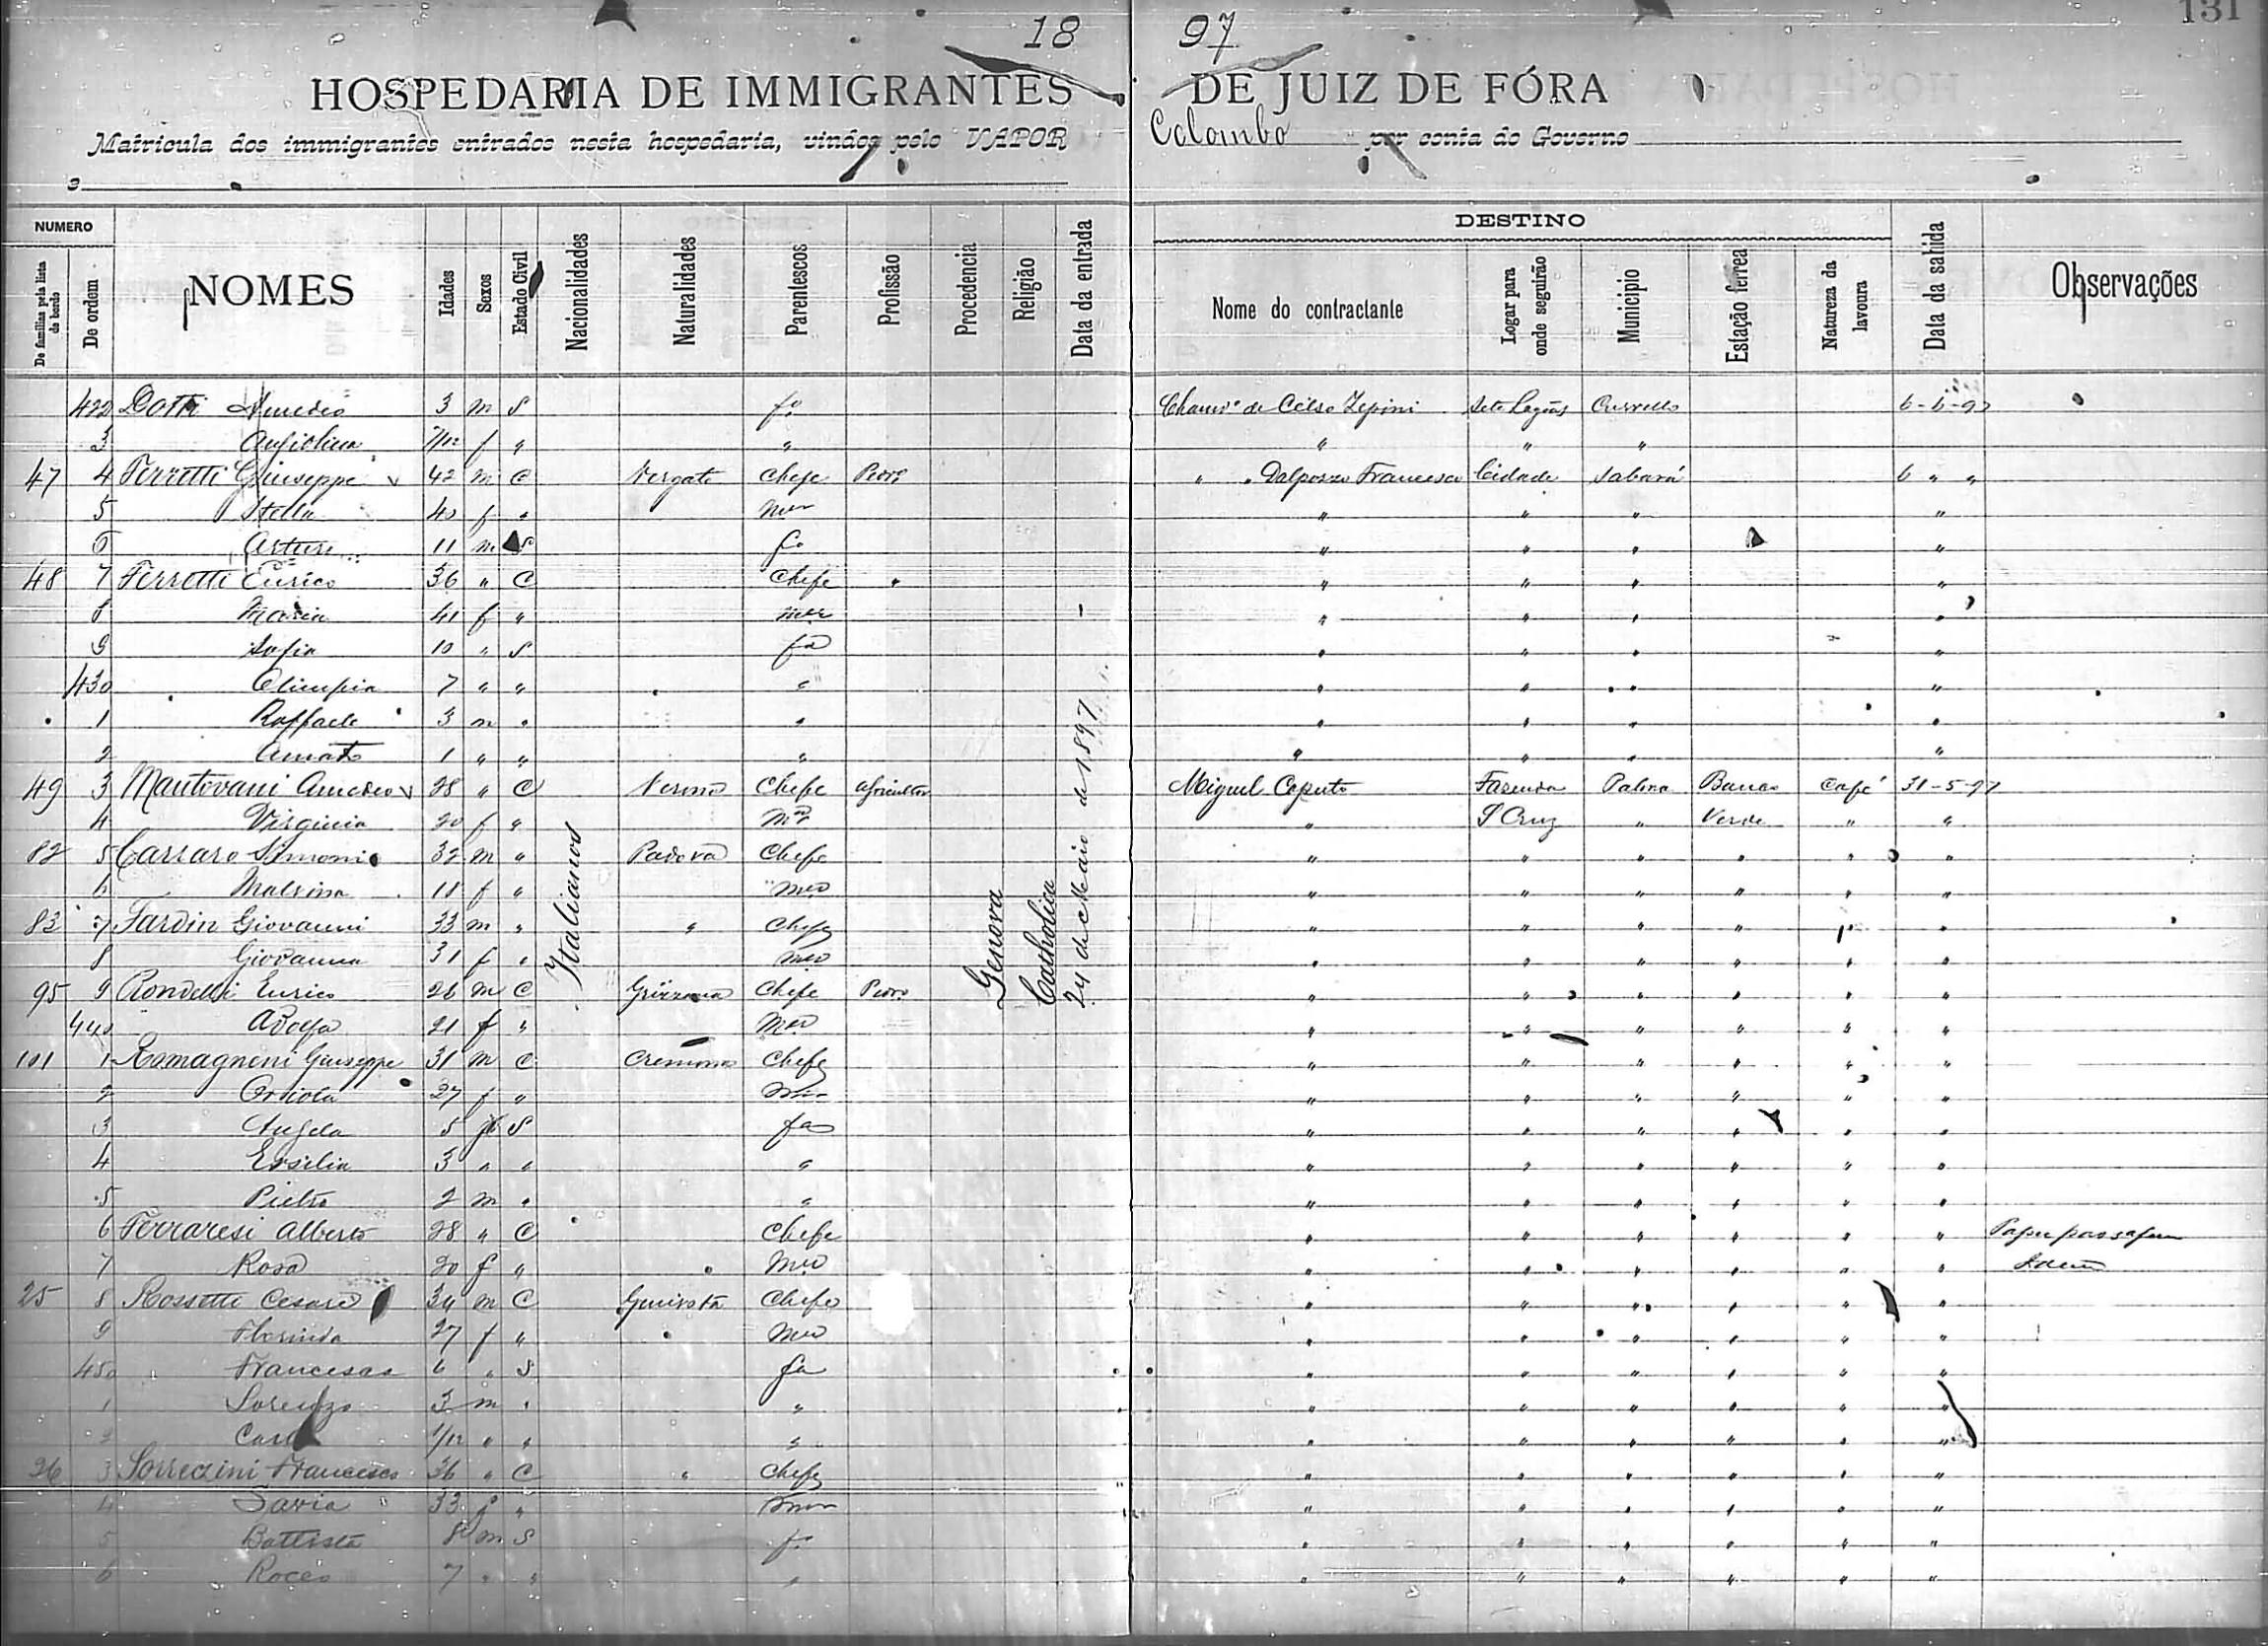 131
18 97
HOSPEDARIA DE IMMIGRANTES DE JUIZ DE FÓRA
Matricula dos immigrantes entrados nesta hospedaria, vindos pelo VAPOR Colombo por conta do Governo
e
NUMERO
De familias pela lista de bordo
De ordem
NOMES
Idades
Sexos
Estado Civil
Nacionalidades
Naturalidades
Parentescos
Profissão
Procedencia
Religião
Data da entrada
DESTINO
Nome do contractante
Logar para onde seguirão
Municipio
Estação ferrea
Natureza da lavoura
Data da sahida
Observações
Italianos
Genova
Catholica
24 de Maio de 1897
422 Dotti Amedeo 3 m S fo Cham.º de Celso Zepini Sete Lagôas Curvello 6-6-97
3 Angiolina 7/12 f " " " " "
47 4 Ferretti Giuseppe 42 m C Vergato Chefe Pedro " " Dalpozzo Francesco Cidade Sabará 6 " "
5 Stella 40 f " mer " " " "
6 Arturo 11 m S fo " " " "
48 7 Ferretti Enrico 36 " C Chefe " " " " "
8 Maria 41 f " mer " " " "
9 Sofia 10 " S fa " " " "
430 Olimpia 7 " " " " " " "
1 Raffaele 3 m " " " " " "
2 Amato 1 " " " " " " "
49 3 Mantovani Amedeo 28 " C Chefe agricultor Miguel Caputo Fazenda Palma Banco Café 31-5-97
4 Virginia 20 f " mer " S Cruz " Verde " "
82 5 Carraro 32 m " Padova Chefe " " " " " "
6 Malvina 18 f " mer " " " " " "
83 7 Fardin Giovanni 33 m " " Chefe " " " " " "
8 Giovanna 31 f " mer " " " " " "
95 9 Rondelli Enrico 26 m C Grizzana Chefe " " " " " "
440 Adolfa 21 f " mer " " " " " "
101 1 Romagneni Giuseppe 31 m C Cremona Chefe " " " " " "
2 27 f " mer " " " " " "
3 Angela 5 f S fa " " " " " "
4 Ersilia 3 " " " " " " " " "
5 Pietro 2 m " " " " " " " "
6 Ferraresi Alberto 28 " C Chefe " " " " " "
7 Rosa 20 f " " mer " " " " " " Idem
25 8 Rossetti Cesare 34 m C Chefe " " " " " "
9 Florinda 27 f " " mer " " " " " "
450 Francesca 6 " S fa " " " " " "
1 Lorenzo 3 m " " " " " " " "
2 Carlo 1/12 " " " " " " " " "
26 3 Francesco 36 " C " Chefe " " " " " "
4 Savia 33 f " mer " " " " " "
5 Battista 8 m S fo " " " " " "
6 Rocco 7 " " " " " " " " "